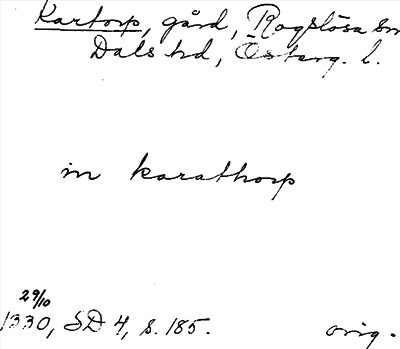 Kartorp, gård, Rogslösa sn
Dals hd, Österg. l.
in karathorp
29/10
1330, SD 4, s. 185.
orig.